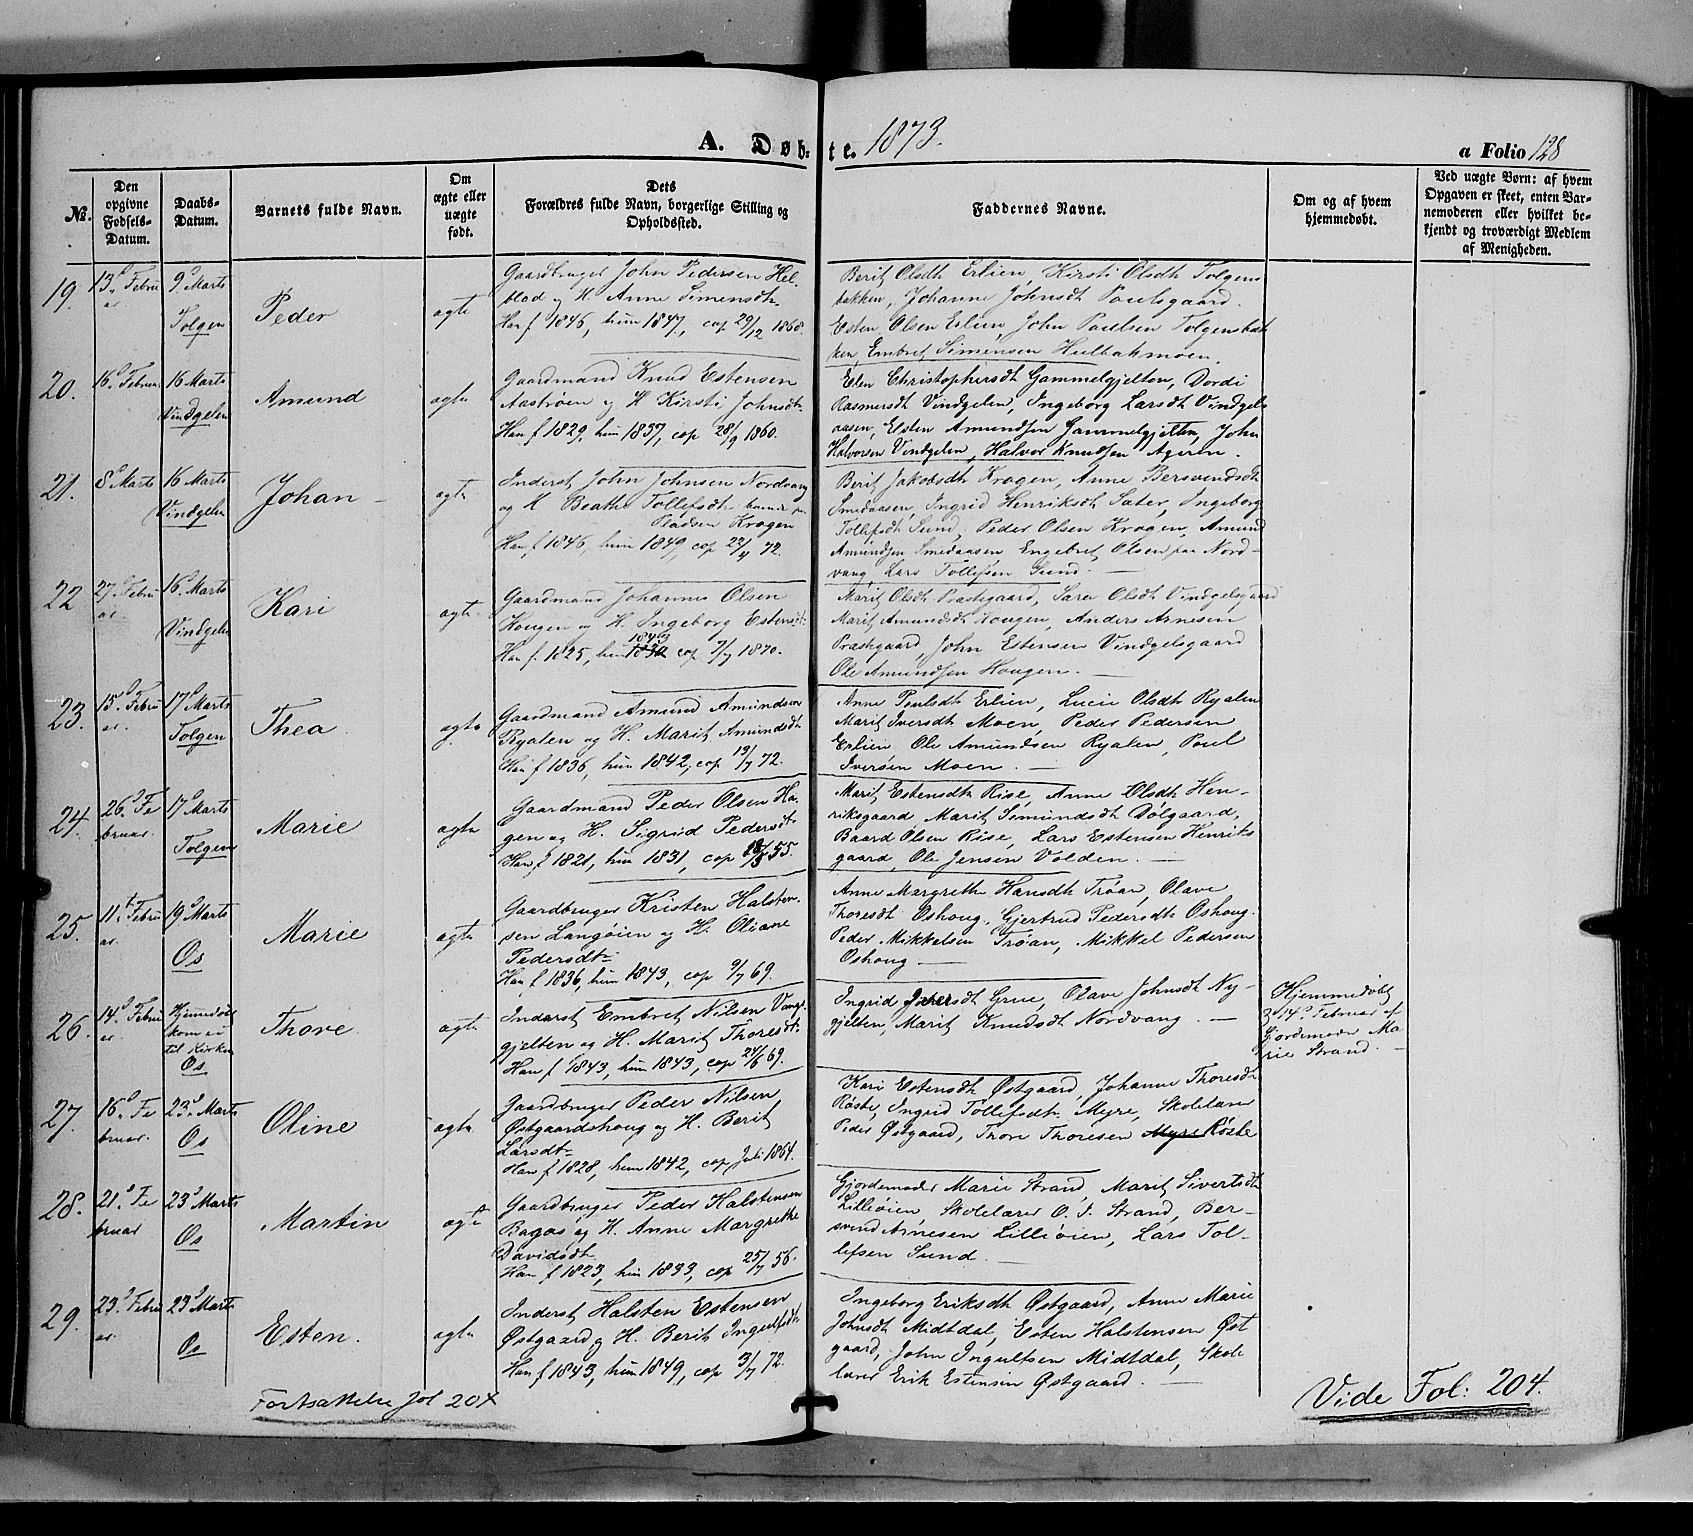 A. Døb- te. 1873.
a Folio 128
No.
Den opgivne Fødsels-Datum.
Daabs-Datum.
Barnets fulde Navn.
Om ægte eller uægte født.
Dets Forældres fulde Navn, borgerlige Stilling og Opholdssted.
Faddernes Navne.
Om og af hvem hjemmedøbt.
Ved uægte Børn: af hvem Opgaven er skeet, enten Barnemoderen eller hvilket bekjendt og troværdigt Medlem af Menigheden.
19. 13d Februar 9d Marts Tolgen
Peder
ægte
Gaardbruger John Pedersen Hel-
blad og H. Anne Simensdt.
Han f 1846, hun 1847, cop 29/12 1868.
Berit Olsdt Erlien, Kirsti Olsdt Tolgens
bakken, Johanne Johnsdt Poulsgaard.
Esten Olsen Erlien, John Paulsen Tolgensbak
ken, Embret Simensen Hulbakmoen.
20. 16d Februar 16 Marts Vindgelen
Amund
ægte
Gaardmand Knud Estensen
Aastrøen og H Kirsti Johnsdt
Han f 1829, hun 1837, cop 28/9 1860.
Elen Christophersdt Gammelgjelten, Dordi
Rasmersdt Vindgelen, Ingeborg Larsdt Vindgels
aasen, Esten Amundsen Gammelgjelten, John
Halvorsen Vindgelen, Halvor Knudsen Ageren.
21. 8d Marts 16 Marts Vindgelen
Johan
ægte
Inderst John Johnsen Nordvang
og H Beathe Tollefsdt
Pladsen Krogen
Han f 1846, hun 1849, cop 22/4 72.
Berit Jakobsdt Krogen, Anne Bersvendsdt
Smedaasen, Ingrid Henriksdt Sater, Ingeborg
Tollefsdt Sund, Peder Olsen Krogen, Amund
Amundsen Smedaasen, Engebret Olsen paa Nord-
vang, Lars Tollefsen Sund.
22 27d Februar 16d Marts Vindgelen
Kari
ægte
Gaardmand Johannes Olsen
Hougen og H. Ingeborg Estensdt
1843
Han f. 1825, hun 1832 cop 7/7 1870.
Marit Olsdt Præstgaard, Sara Olsdt Vindgelsgaard
Marit Amundsdt Hougen, Anders Arnesen
Præstgaard, John Estensen Vindgelsgaard
Ole Amundsen Hougen.
23. 15d Februar. 17d Marts Tolgen
Thea
ægte
Gaardmand Amund Amundsen
Ryalen og H. Marit Amundsdt
Han f 1836, hun 1842, cop 13/7 72.
Anne Poulsdt Erlien, Lucie Olsdt Ryalen
Marit Iversdt Moen, Peder Pedersen
Erlien, Ole Amundsen Ryalen, Poul
Iversen Moen.
24. 26d Februar 17d Marts Tolgen
Marie
ægte
Gaardmand Peder Olsen Ha-
gen og H. Sigrid Pedersdt
Han f 1821, hun 1831, cop 55.
Marit Estensdt Rise, Anne Olsdt Hen-
riksgaard, Marit Simundsdt Dølgaard,
Baard Olsen Rise, Lars Estensen Henriks
gaard, Ole Jensen Volden.
25. 11t Februar 19d Marts Os
Marie
ægte
Gaardbruger Kristen Halsten-
sen Langøien og H. Oliane
Pedersdt
Han f 1836, hun 1843, cop 9/7 69.
Anne Margrethe Hansdt Trøan, Olave
Thoresdt Oshoug, Gjertrud Pedersdt Oshoug.
Peder Mikkelsen Trøan, Mikkel Pedersen
Oshoug
26. 14d Februar Hjemmedøbt kom ei til Kirken Os
Thore
ægte
Inderst Embret Nilsen Vangs
gjelten og H. Marit Thoresdt
Han f 1843, hun 1843, cop 24/6 69.
Ingrid Iversdt Grue, Olave Johnsdt Ny-
gjelten, Marit Knudsdt Nordvang.
Hjemmedøbt
d 14d Februar af
Gjordemoder Ma
rie Strand.
27. 16d Februar. 23d Marts Os
Oline
ægte
Gaardbruger Peder Nilsen,
Østgaardshoug og H. Berit
Larsdt
Han f 1828, hun 1842, cop Juli 1864.
Kari Estensdt Østgaard, Johanne Thoresdt
Røste, Ingrid Tollefsdt Myre, Skolelærer
Peder Østgaard, Thore Thoresen Myre Røste
28. 21d Februar 23d Marts Os
Martin
ægte
Gaardbruger Peder Halstensen
Bagaas og H. Anne Margrethe
Davidsdt
Han f 1823, hun 1833, cop 25/7 56.
Gjordemoder Marie Strand, Marit Sivertsdt
Lilleøien Skolelærer O. J. Strand, Ber-
svend Arnesen Lilleøien, Lars Tol-
lefsen Sund.
29. 23d Februar. 23d Marts Os
Esten.
ægte
Inderst Halsten Estensen
Østgaard og H. Berit Ingulfsdt
Han f 1843, hun 1849, cop 3/7 72.
Ingeborg Eriksdt Østgaard, Anne Marie
Johnsdt Midtdal, Esten Halstensen Øst
gaard, John Ingulfsen Midtdal, Skole
lærer Erik Estensen Østgaard.
Fortsættelse fol 204
Vide Fol: 204.